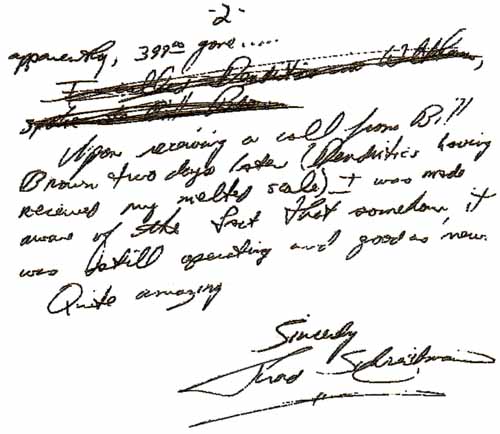 -2-
apparently, 399.00 gone.....
I
spoke to Bill Brown
Upon receiving a call from Bill
Brown two days later (Dendritics having
received my melted scale) I was made
aware of the fact that somehow it
was still operating and good as new.
Quite amazing
Sincerely